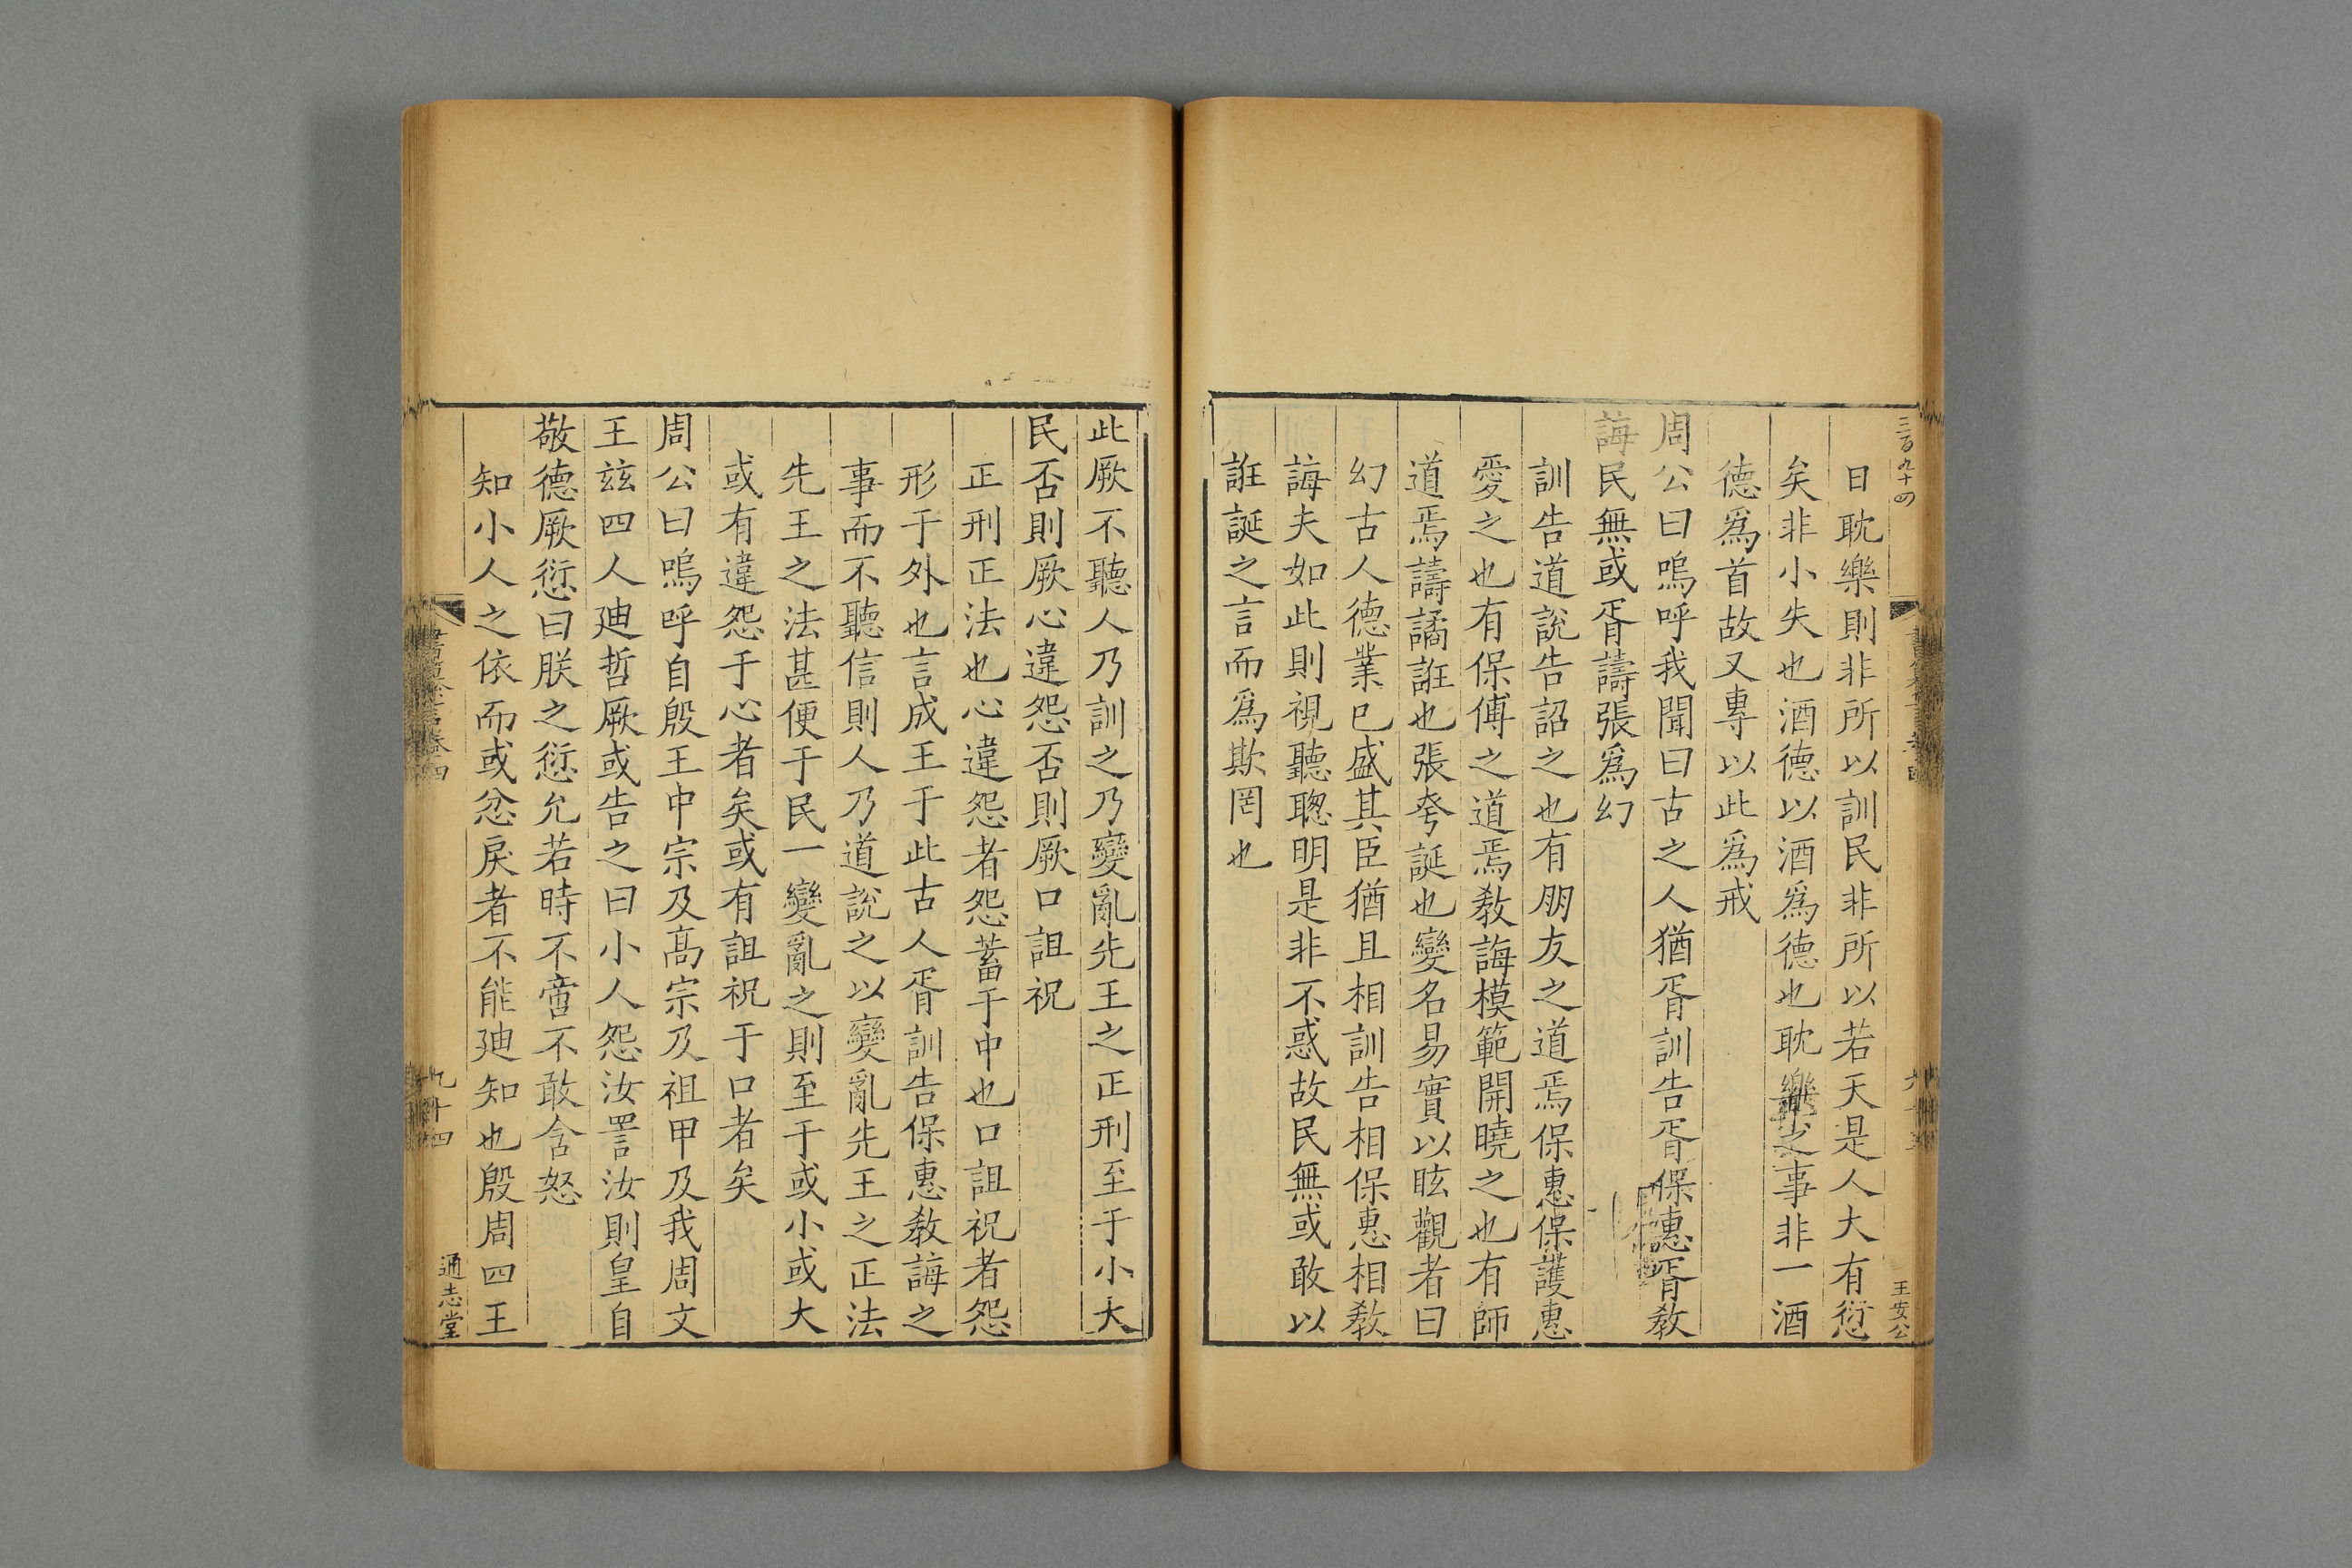 三百九十四
王安公
日耽樂則非所以訓民非所以若天是人大有愆
矣非小失也酒德以酒爲德也耽樂之事非一酒
德爲首故又專以此爲戒
周公曰嗚呼我聞曰古之人猶胥訓告胥保惠胥教
誨民無或胥譸張爲幻
訓告道說告詔之也有朋友之道焉保惠保護惠
愛之也有保傅之道焉教誨模範開曉之也有師
道焉譸譎誑也張夸誕也變名易實以眩觀者曰
幻古人德業已盛其臣猶且相訓告相保惠相教
誨夫如此則視聽聰明是非不惑故民無或敢以
誑誕之言而爲欺罔也
此厥不聽人乃訓之乃變亂先王之正刑至于小大
民否則厥心違怨否則厥口詛祝
正刑正法也心違怨者怨蓄于中也口詛祝者怨
形于外也言成王于此古人胥訓告保惠教誨之
事而不聽信則人乃道說之以變亂先王之正法
先王之法甚便于民一變亂之則至于或小或大
或有違怨于心者矣或有詛祝于口者矣
周公曰嗚呼自殷王中宗及高宗及祖甲及我周文
王兹四人迪哲厥或告之曰小人怨汝詈汝則皇自
敬德厥愆曰朕之愆允若時不啻不敢含怒
知小人之依而或忿戾者不能迪知也殷周四王
九十四
通志堂